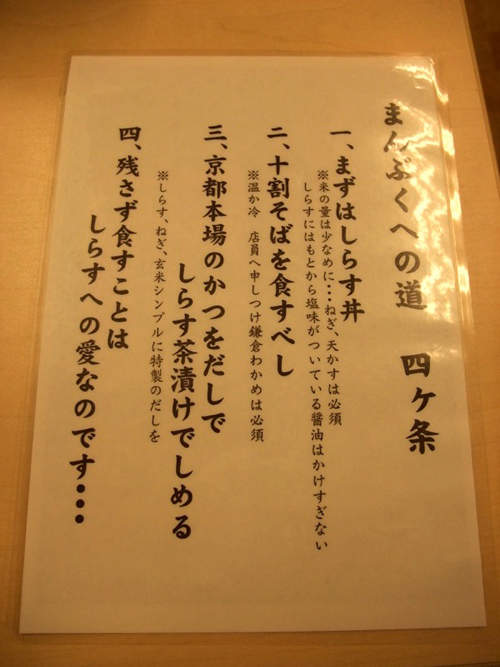 まんぷくへの道　四ヶ条
一、まずはしらす丼
※米の量は少なめに・・・ねぎ、天かすは必須
しらすにはもとから塩味がついている醤油はかけすぎない
二、十割そばを食すべし
※温か冷　店員へ申しつけ鎌倉わかめは必須
三、京都本場のかつをだしで
しらす茶漬けでしめる
※しらす、ねぎ、玄米シンプルに特製のだしを
四、残さず食すことは
しらすへの愛なのです・・・